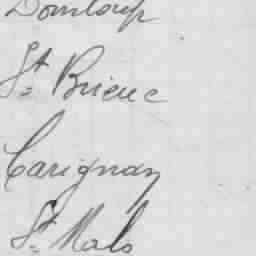 Domloup
St Brieuc
Carignan
St Malo